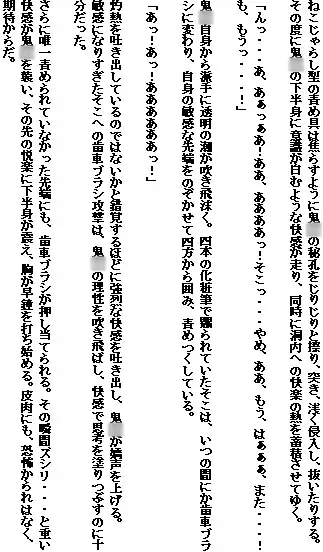 ねこじゃらし型の責め具は焦らすように鬼の秘孔をじりじりと擦り、突き、浅く侵入し、抜いたりする。
その度に鬼の下半身に意識が白むような快感が走り、同時に洞内への快楽の熱を蓄積させてゆく。
「んっ・・・あ、あぁっぁあ！ああ、ああああっ！そこっ・・・やめ、ああ、もう、はぁぁぁ、また・・・！
も、もうっ・・・！」
鬼自身から派手に透明の潮が吹き飛沫く。四本の化粧筆で嬲られていたそこは、いつの間にか歯車ブラ
シに変わり、自身の敏感な先端をのぞかせて四方から囲み、責めつくしている。
「あっ！あっ！ああああああっ！」
灼熱を吐き出しているのではないかと錯覚するほどに強烈な快感を吐き出し、鬼が嬌声を上げる。
敏感になりすぎたそこへの歯車ブラシ攻撃は、鬼の理性を吹き飛ばし、快感で思考を塗りつぶすのに十
分だった。
さらに唯一責められていなかった先端にも、歯車ブラシが押し当てられる。その瞬間ズシリ・・・と重い
快感が鬼を襲い、その先の悦楽に下半身が震え、胸が早鐘を打ち始める。皮肉にも、恐怖かられはなく、
期待からだ。